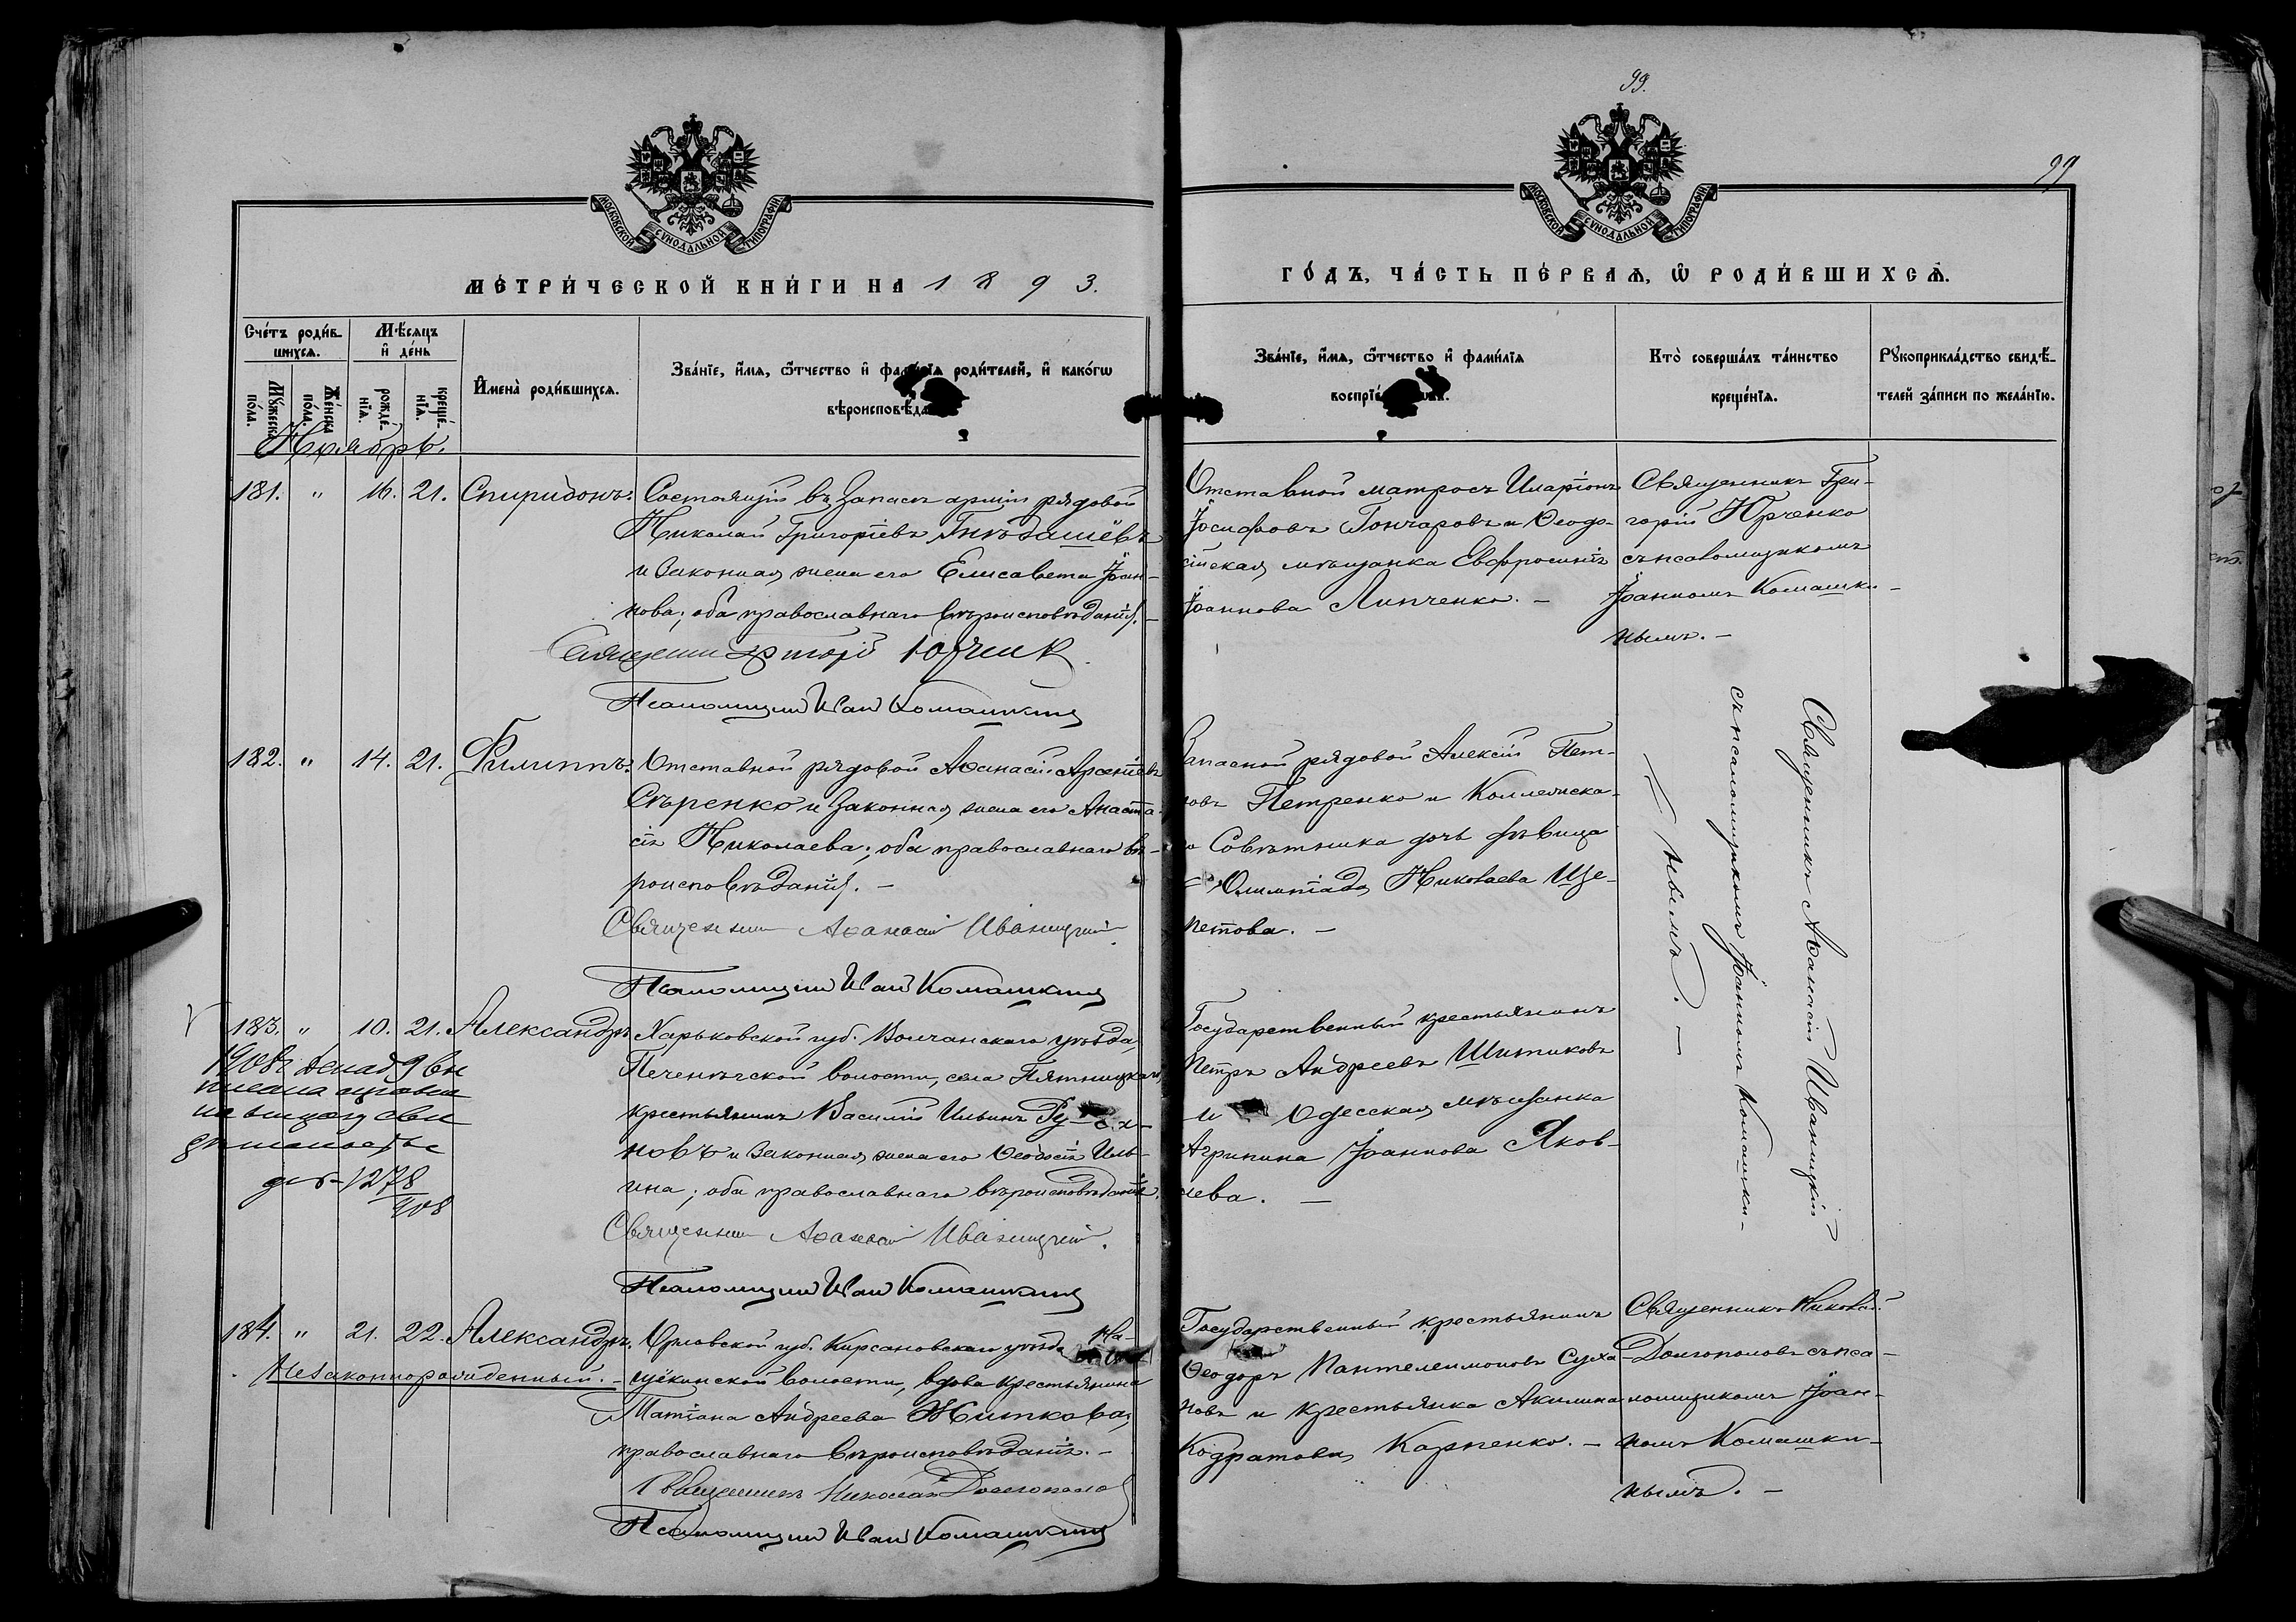 99.
99
МОСКОВСКОЙ СѴНОДАЛЬНОЙ ТИПОГРАФІИ
МОСКОВСКОЙ СѴНОДАЛЬНОЙ ТИПОГРАФІИ
МЕТРИЧЕСКОЙ КНИГИ НА 1893.
ГОДЪ, ЧАСТЬ ПЕРВАЯ, Ѿ РОДИВШИХСЯ.
Счетъ родив-
шихся.
Мѣсяцъ
и день
Мужеска пола.
Женска пола.
рожде-
нія.
креще-
нія.
Имена родившихся.
Званіе, имя, ѿтчество и фамилія родителей, и какогѡ
вѣроисповѣда
Званіе, имя, ѿтчество и фамилія
воспріе
Кто совершалъ таинство
крещенія.
Рукоприкладство свидѣ-
телей записи по желанію.
Ноябрь.
181. " 16. 21. Спиридонъ. Состоящій въ запасѣ арміи рядовой
Николай Григоріевъ
и законная жена его Елисавета Іоан-
нова; оба православнаго вѣроисповѣданія. -
Юрченк
Псаломщикъ Иван Комашкинъ
Отставной матросъ Иларіонъ
Іосифовъ Гончаровъ и Ѳеодо-
сійская мѣщанка Евфросинія
Іоаннова Липченко. -
Священникъ Гри-
горій Юрченко
съ псаломщикомъ
Іоанномъ Комашки-
нымъ. -
182. " 14. 21. Филиппъ. Отставной рядовой Аѳанасій Арсеніевъ
Сѣренко и законная жена его Анаста-
сія Николаева; оба православнаго вѣ-
роисповѣданія. -
Священник Аѳанасій Иваницкій
Псаломщикъ Иван Комашкинъ
Запасной рядовой Алексій Пет-
ровъ Петренко и Коллежска-
го Совѣтника дочь дѣвица
= Олимпіада Николаева Ще-
петова. -
Священникъ Аѳанасій Иваницкій
съ псаломщикомъ Іоанномъ Комашки-
нымъ. -
183. " 10. 21. Александръ. Харьковской губ. Волчанскаго уѣзда,
Печенѣжской волости, села Пятницкаго,
крестьянинъ Василій Ильинъ
новъ и законная жена его Ѳеодосія Иль-
ина; оба православнаго вѣроисповѣданія.
Священник Аѳанасій Иваницкій.
Псаломщикъ Иван Комашкинъ
1908г.
1278
908
Государственный крестьянинъ
Петръ Андреевъ Шитиковъ
и Одесская мѣщанка
Агрипина Іоаннова Яков-
лева. -
184. " 21. 22. Александръ, Орловской губ. Кирсановскаго уѣзда На-
Незаконнорожденный. - щёкинской волости, вдова крестьянина
Татіана Андреева Житкова,
православнаго вѣроисповѣданія. -
Священникъ Николай Долгополов
Псаломщикъ Иван Комашкинъ
Государственный крестьянинъ
Ѳеодоръ Пантелеимоновъ Суха-
новъ и крестьянка Акилина
Кодратова Карпенко. -
Священникъ Николай
Долгополовъ съ пса-
ломщикомъ Іоан-
номъ Комашки-
нымъ. -